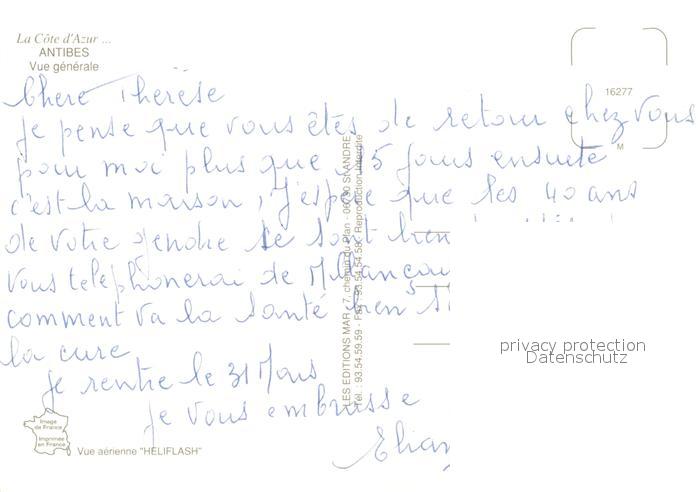 La Côte d'Azur ...
ANTIBES
Vue générale
16277
M
Chere Thérèse
je pense que vous êtes de retour chez vous
pour moi plus que 5 jours ensuite
c'est la maison, j'espère que les 40 ans
de votre gendre se sont bien
vous telephonerai de
comment va la santé bien
la cure
je rentre le 31 Mars
je vous embrasse
LES EDITIONS MAR - 7, chemin du Plan - ST-ANDRE
Tél. : 93.54.59.59 - Fax : 93.54.54.58. Reproduction interdite
privacy protection
Datenschutz
Image
de France
Imprimée
en France
Vue aérienne "HÉLIFLASH"